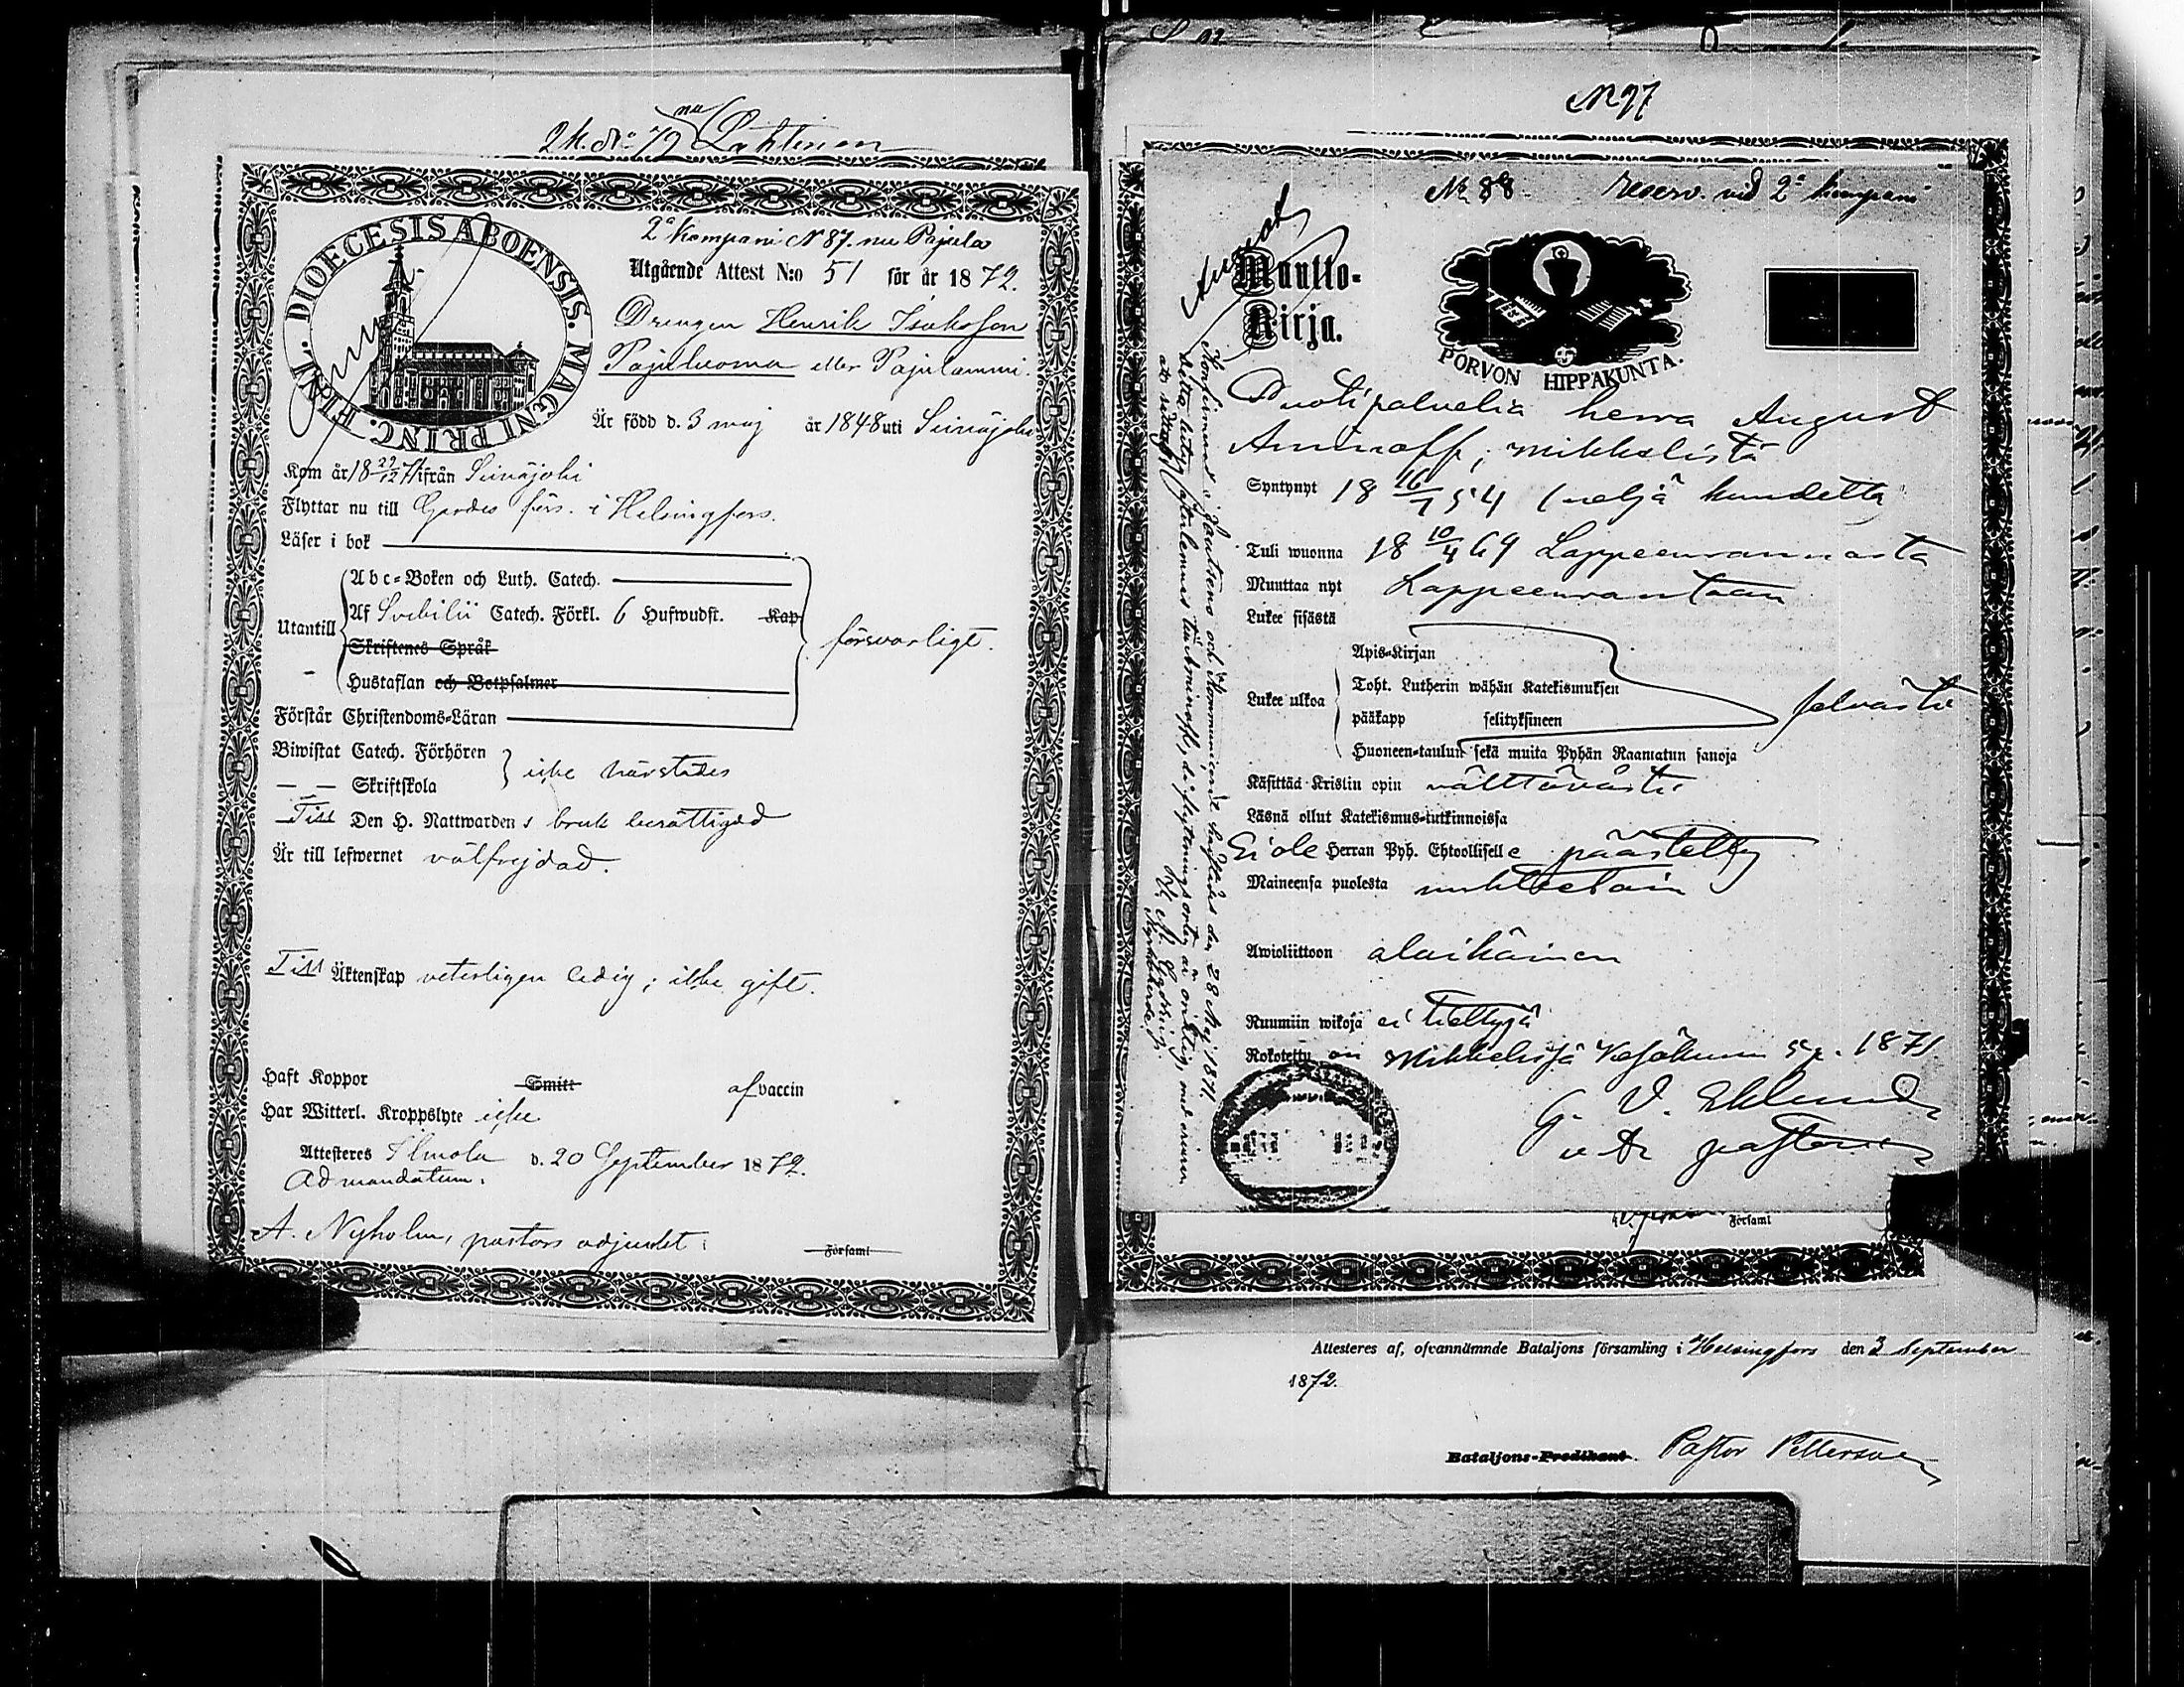 2 k. No 79 nu Lahtinen
DIOECESIS ABOENSIS. MAGNI PRINC. FINL.
2a Kompani N 87. nu Pajula
Utgående Attest N:o 51 för år 1872.
Drengen Henrik Isaksson
Pajuluoma eller Pajulammi.
Är född d. 3 maj år 1848 uti Seinäjoki
Kom år 18 29/12 71 från Seinäjoki
Flyttar nu till Gardes förs. i Helsingfors.
Läser i bok
Utantill
Abc-Boken och Luth. Catech.
Af Svebilii Catech. Förkl. 6 Hufwudst. Kap
Skriftenes Språk
Hustaflan och Botpsalmer
försvarligt.
Förstår Christendoms-Läran
Biwistat Catech. Förhören
— — Skriftskola
icke härstädes
Till Den H. Nattwardens bruk berättigad
Är till lefwernet välfrejdad.
Till Äktenskap veterligen ledig; icke gift.
Haft Koppor Smitt af vaccin
Har Witterl. Kroppslyte icke
Attesteres Ilmola d. 20 September 1872.
Ad mandatum.
A. Nyholm, pastors adjunkt.
Församl
N 97
No 88 reserv. vid 2a kompani
Muutto-
Kirja.
PORVON HIPPAKUNTA.
Puotipalvelia herra August
Aminoff, Mikkelistä
Syntynyt 18 16/7 54 (neljä kuudetta
Tuli wuonna 18 10/4 69 Lappeenrannasta
Muuttaa nyt Lappeenrantaan
Lukee sisästä
Apis-Kirjan
Lukee ulkoa
Toht. Lutherin wähän Katekismuksen
pääkapp selityksineen
Huoneen-taulun sekä muita Pyhän Raamatun sanoja
selvästi
Käsittää Kristin opin välttävästi
Läsnä ollut Katekismus-tutkinnoissa
Ei ole Herran Pyh. Ehtoolliselle päästetty
Maineensa puolesta nuhteetoin
Awioliittoon alaikäinen
Ruumiin wikoja ei tiettyjä
Rokotettu on Mikkelissä Kesäkuun 5 p. 1871
G. V. Eklund
v. t. pastori
Konfirmerad i Gäutiens och kommunicerade härstädes den 28 Maj 1871.
Församl
Attesteres af, ofvannämnde Bataljons församling i Helsingfors den 3 September
1872.
Bataljons-Predikant. Pastor Petterson